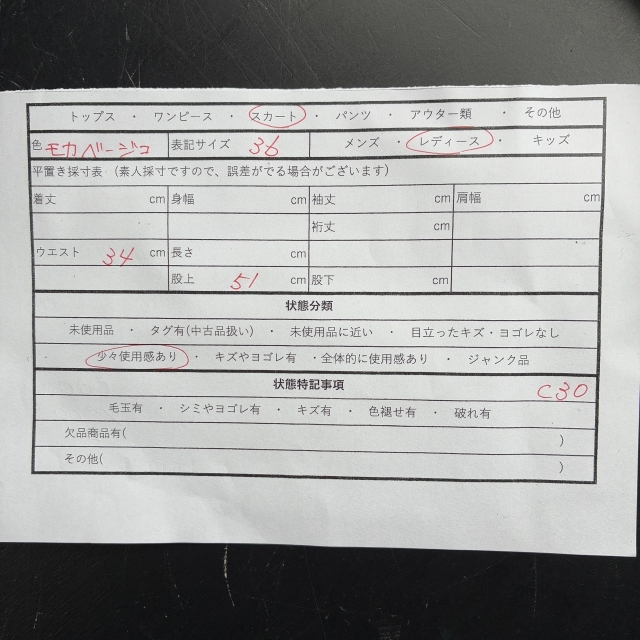 トップス ・ ワンピース ・ スカート ・ パンツ ・ アウター類 ・ その他
色 モカベージュ 表記サイズ 36 メンズ ・ レディース ・ キッズ
平置き採寸表 （素人採寸ですので、誤差がでる場合がございます）
着丈 cm 身幅 cm 袖丈 cm 肩幅 cm
裄丈 cm
ウエスト 34 cm 長さ cm
股上 51 cm 股下 cm
状態分類
未使用品 ・ タグ有(中古品扱い) ・ 未使用品に近い ・ 目立ったキズ・ヨゴレなし
少々使用感あり ・ キズやヨゴレ有 ・全体的に使用感あり ・ ジャンク品
状態特記事項 C30
毛玉有 ・ シミやヨゴレ有 ・ キズ有 ・ 色褪せ有 ・ 破れ有
欠品商品有( )
その他( )